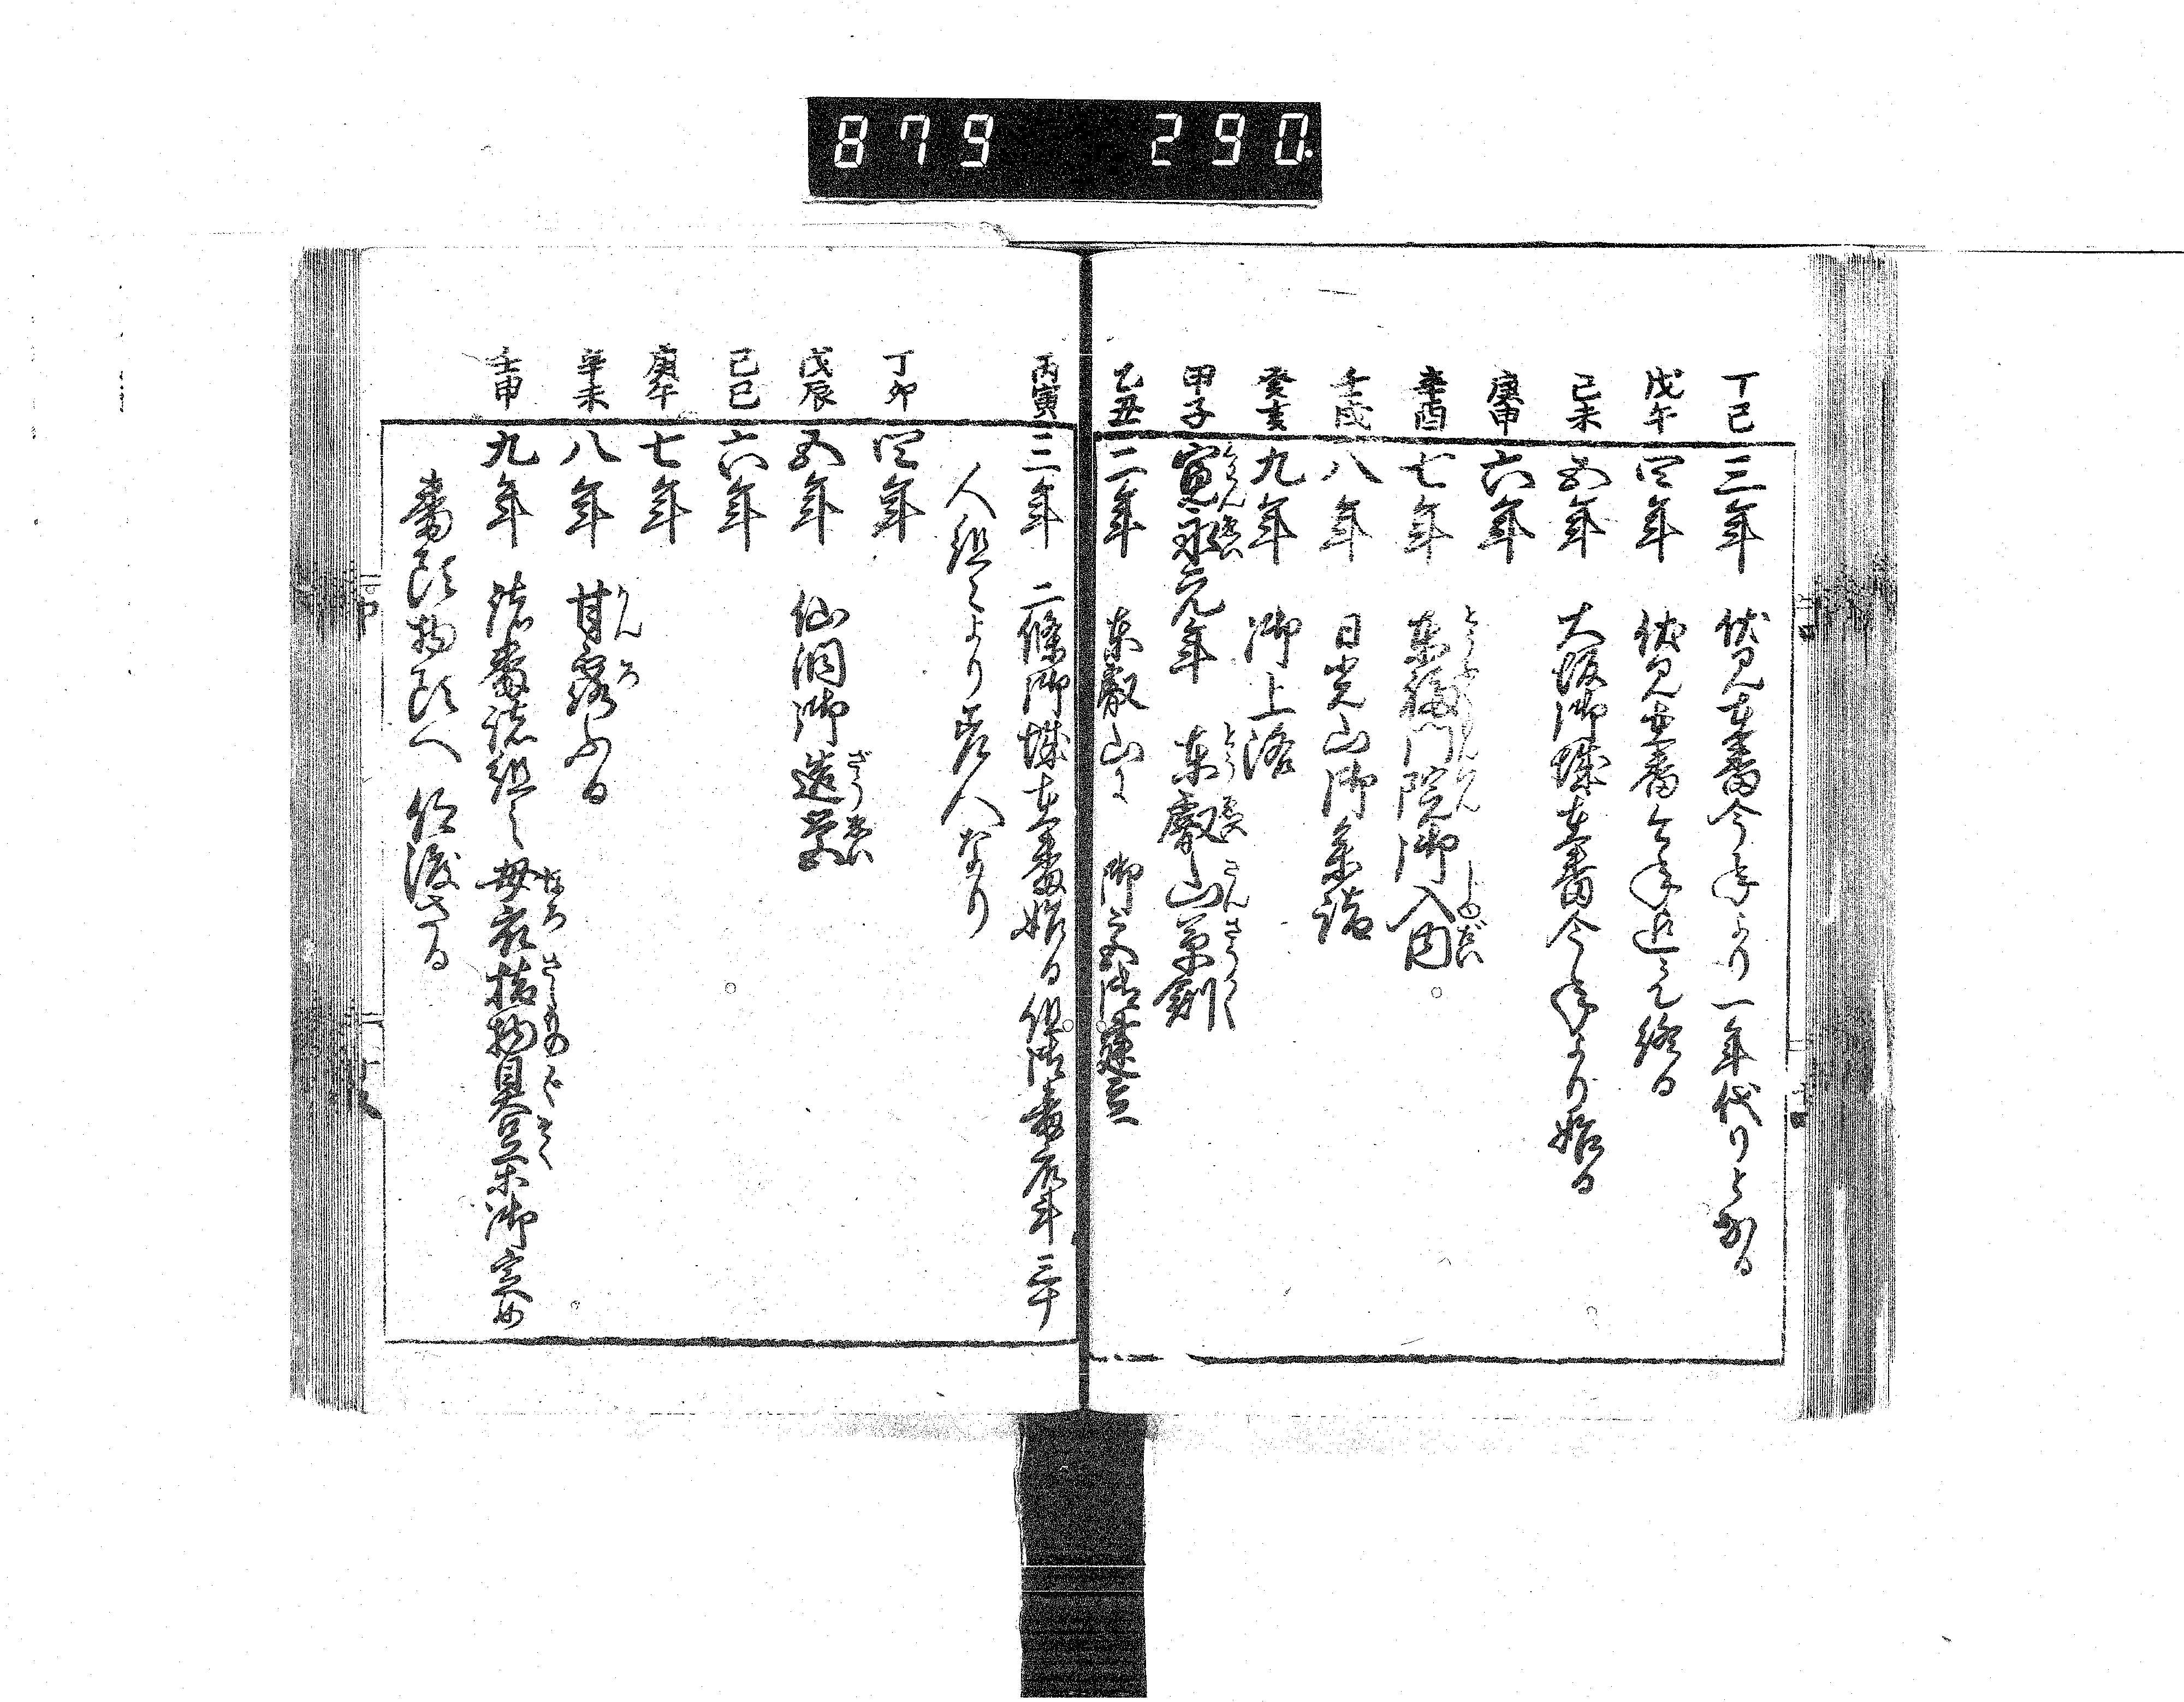 879 290.
丁巳 三年 伏見在番今年より一年代りとなる
戊午 四年 伏見在番今年迄にて終る
己未 五年 大坂御城在番今年より始る
庚申 六年
辛酉 七年 東福門院御入内
壬戌 八年 日光山御参詣
癸亥 九年 御上洛
甲子 寛永元年 東叡山草創
乙丑 二年 東叡山に 御建立
丙寅 三年 二條御城在番始る 三十
人組々より 人なり
丁卯 四年
戊辰 五年 仙洞御造営
己巳 六年
庚午 七年
辛未 八年 甘露ふる
壬申 九年 諸番諸組之母衣指物具足等御定め
番頭物頭へ 仰渡さる